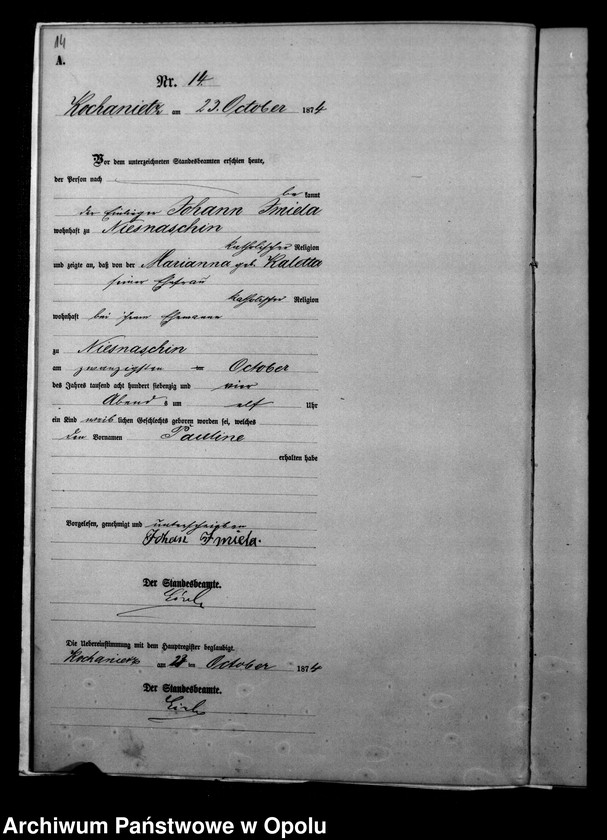 14
A.
Nr. 14.
Kochanietz am 23. October 1874
Vor dem unterzeichneten Standesbeamten erschien heute,
der Person nach
bekannt
der Einlieger Johann Imiela
wohnhaft zu Niesnaschin
katholischer Religion
und zeigte an, daß von der Marianna geb. Kaletta
seiner Ehefrau
katholischer Religion
wohnhaft bei ihrem Ehemanne
zu Niesnaschin
am zwanzigsten ten October
des Jahres tausend acht hundert siebenzig und vier
Abend s um elf Uhr
ein Kind weib lichen Geschlechts geboren worden sei, welches
den Vornamen Pauline
erhalten habe
Vorgelesen, genehmigt und unterschrieben
Johan Imiela.
Der Standesbeamte.
Die Uebereinstimmung mit dem Hauptregister beglaubigt.
Kochanietz am 23 ten October 1874
Der Standesbeamte.
Archiwum Państwowe w Opolu